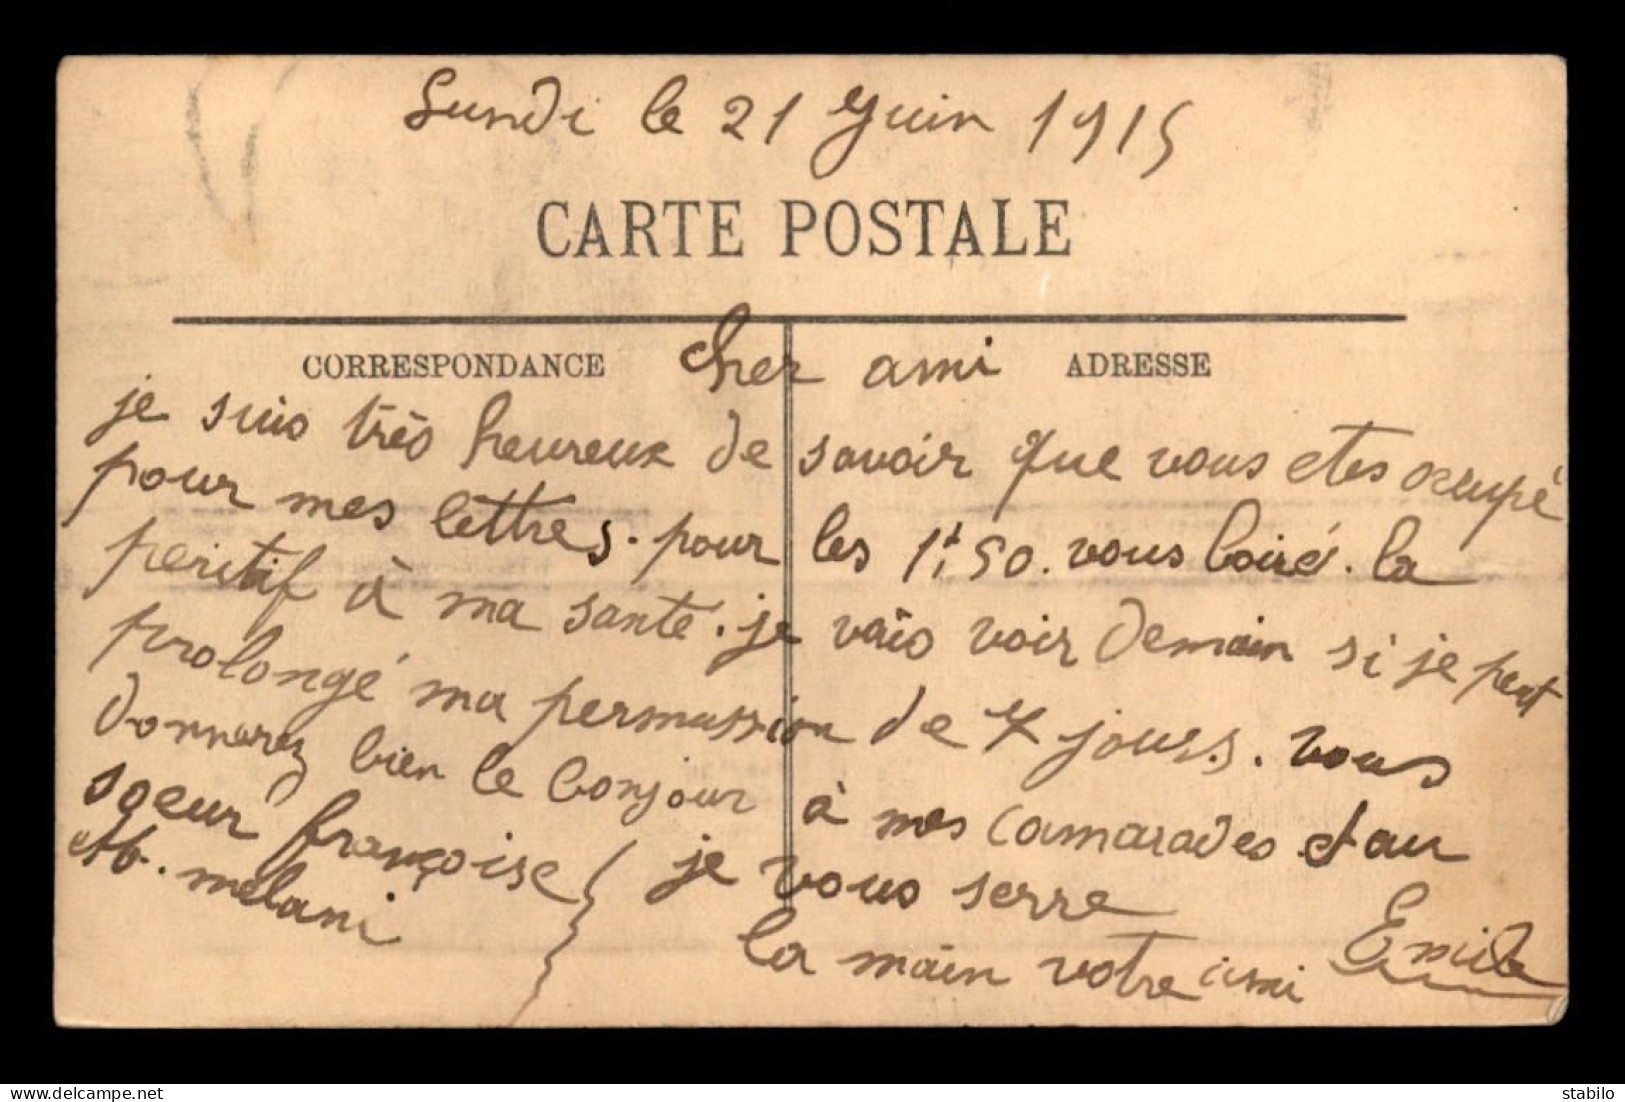 Lundi le 21 Juin 1915
CARTE POSTALE
CORRESPONDANCE cher ami ADRESSE
je suis très heureux de savoir que vous etes ocupé
pour mes lettres. pour les 1f,50. vous boiré. la
peritif à ma santé. je vais voir demain si je peut
prolongé ma permission de 7 jours. vous
donnerez bien le bonjour à mes camarades et au
soeur françoise je vous serre
et melani
la main votre ami Emile
stabilo